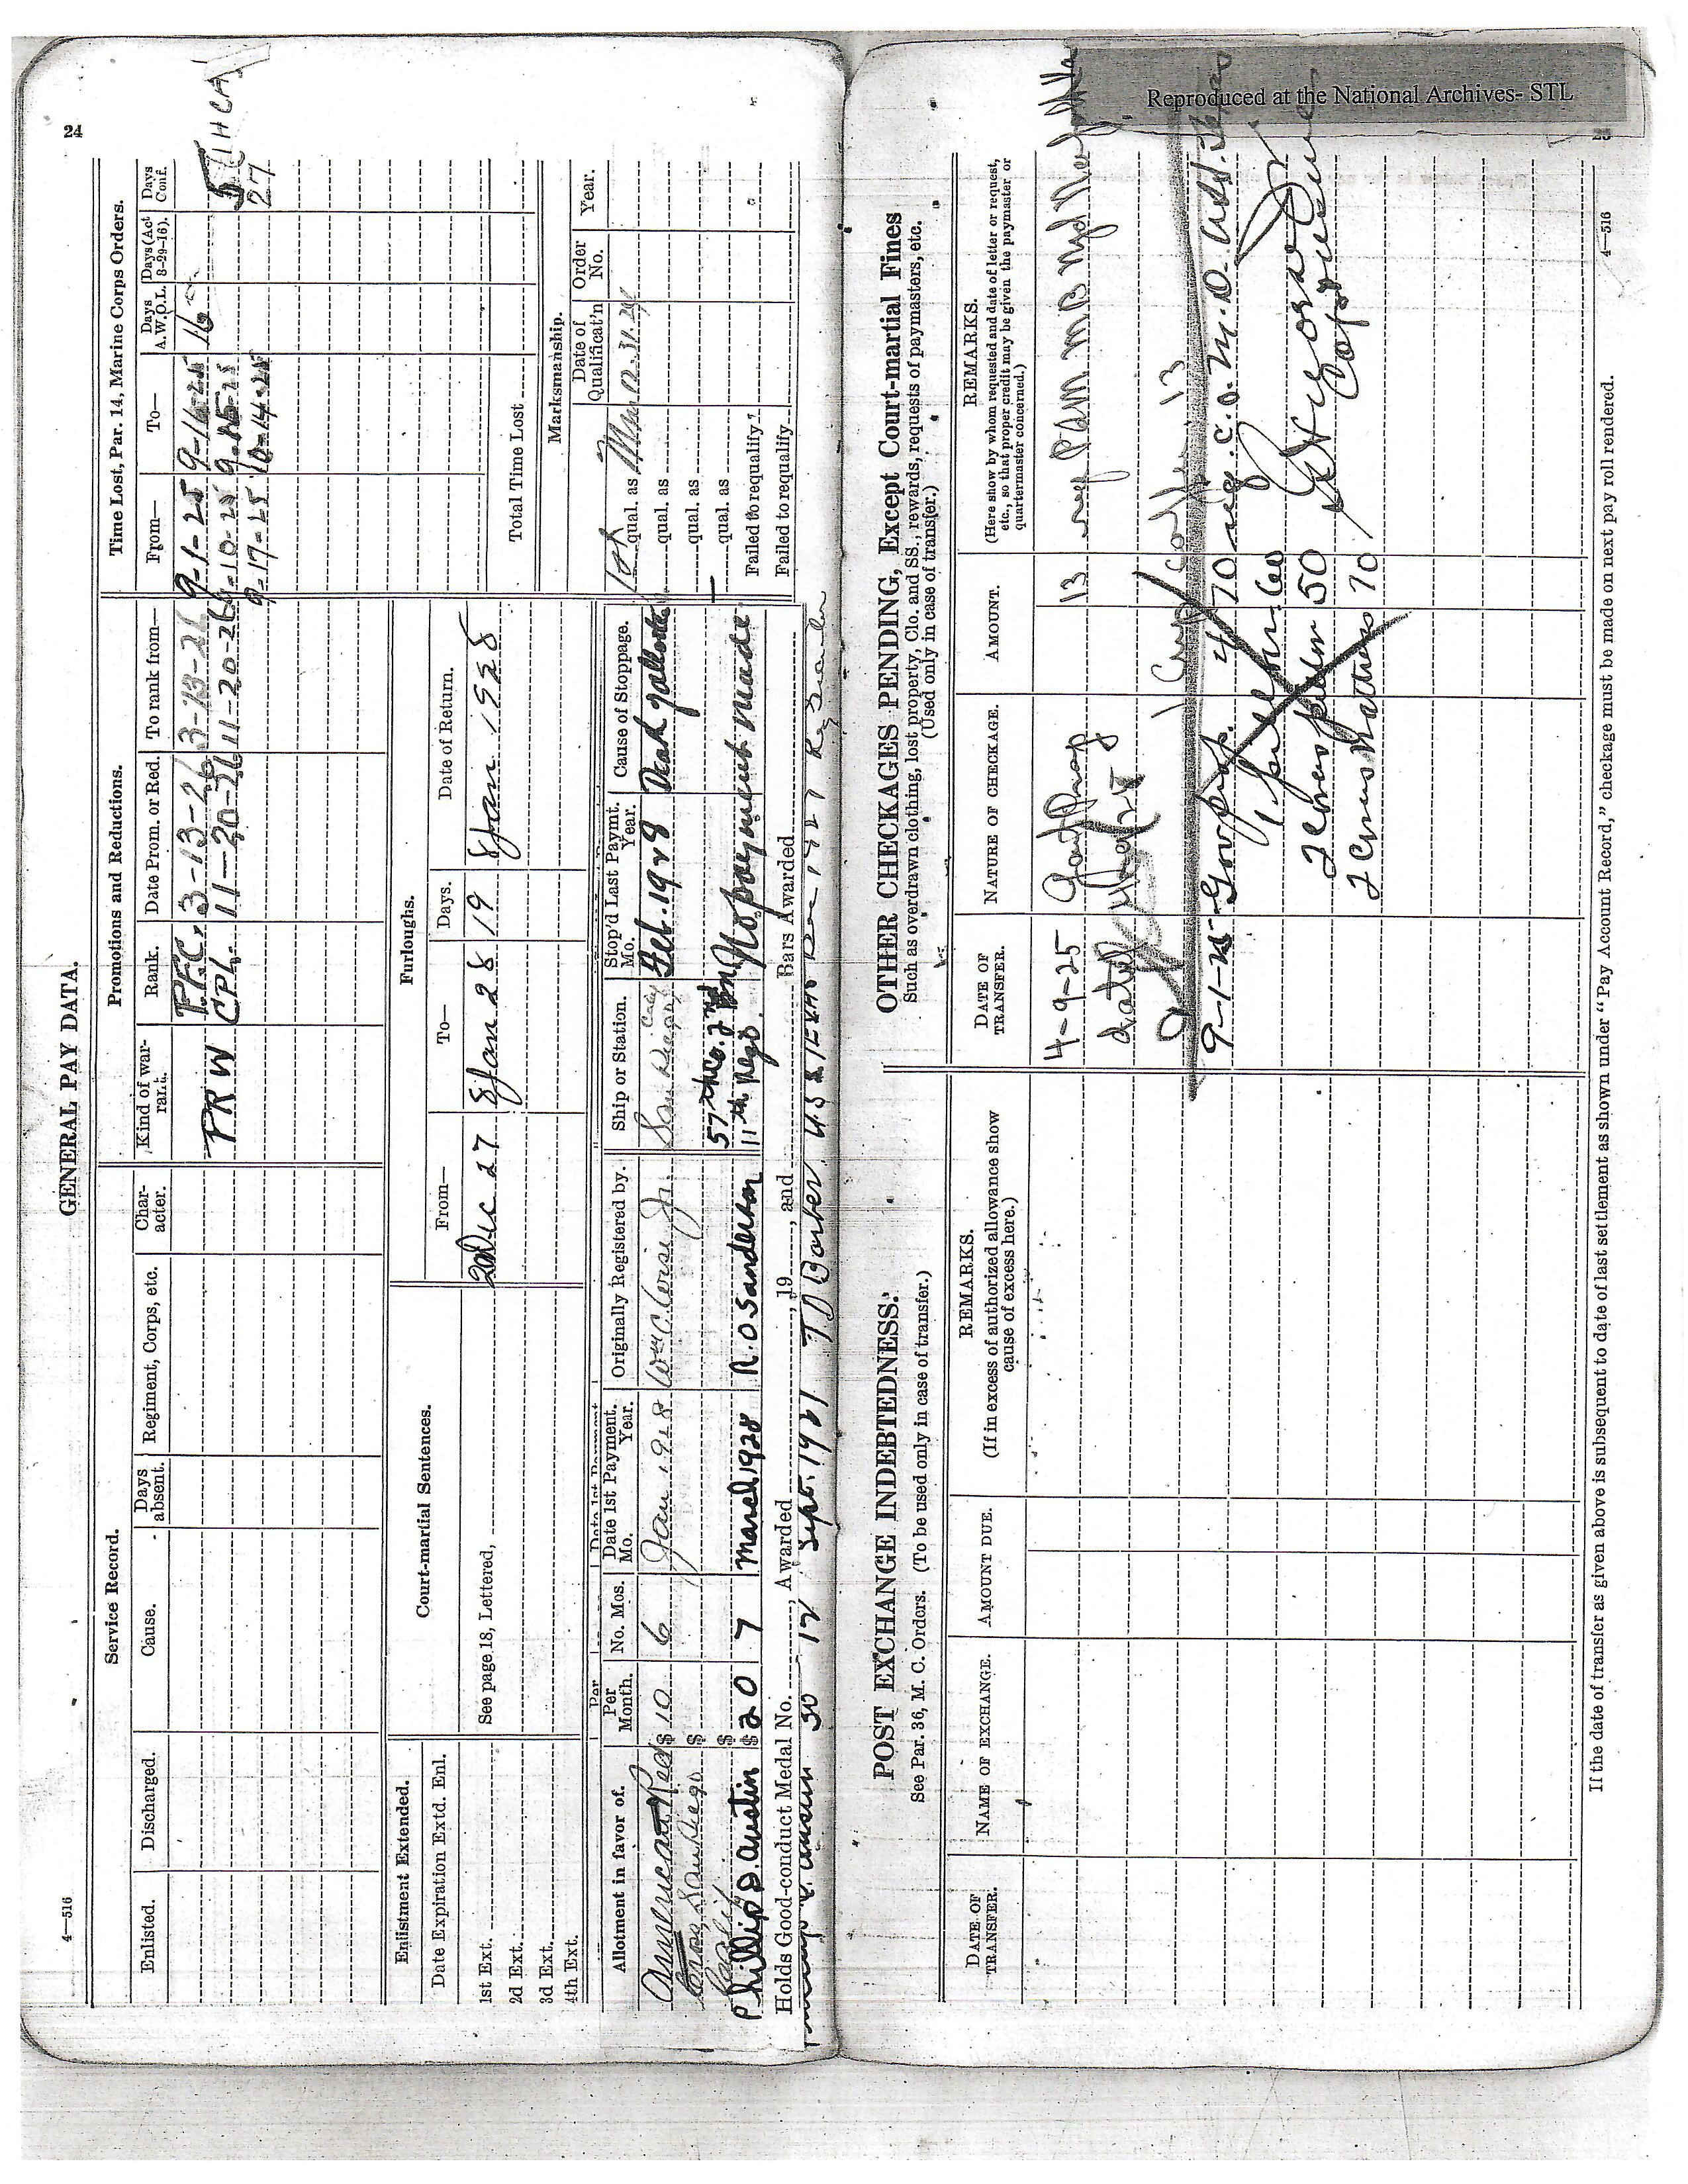 4—516
GENERAL PAY DATA.
24
Service Record.
Enlisted.
Discharged.
Cause.
Days absent.
Regiment, Corps, etc.
Character.
Promotions and Reductions.
Kind of warrant.
Rank.
Date Prom. or Red.
To rank from—
PRW
P.F.C. 3-13-26 3-13-26
CPL. 11-20-26 11-20-26
Time Lost, Par. 14, Marine Corps Orders.
From—
To—
Days A.W.O.L.
Days (Act 8-29-16).
Days Conf.
9-1-25 9-16-25 16
9-10-25 9-15-25 5
9-17-25 10-14-25 27
Total Time Lost
Enlistment Extended.
Date Expiration Extd. Enl.
1st Ext.
2d Ext.
3d Ext.
4th Ext.
Court-martial Sentences.
See page 18, Lettered,
Furloughs.
From—
To—
Days.
Date of Return.
20 Dec 27 8 Jan 28 19 8 Jan. 1928
Marksmanship.
Date of Qualificat'n
Order No.
Year.
qual. as
qual. as
qual. as
qual. as
Failed to requalify
Failed to requalify
Allotment in favor of.
Per Month.
No. Mos.
Date 1st Payment.
Mo. Year.
Originally Registered by.
Ship or Station.
Stop'd Last Paymt.
Mo. Year.
Cause of Stoppage.
American Red $10 6 Jan 1928 Wm C Wise Jr. San Diego Feb. 1928
Cross, San Diego
Calif
$
$
Phillip D. Austin $20 7 March 1928 R. O. Sanderson 57th Co. 2nd Bn 11th Regt. No payment made
Holds Good-conduct Medal No. , Awarded , 19 , and Bars Awarded
30 12 Sept. 1927 T D Barber U.S.S. TEXAS
POST EXCHANGE INDEBTEDNESS.
See Par. 36, M. C. Orders. (To be used only in case of transfer.)
DATE OF TRANSFER.
NAME OF EXCHANGE.
AMOUNT DUE.
REMARKS.
(If in excess of authorized allowance show cause of excess here.)
OTHER CHECKAGES PENDING, Except Court-martial Fines
Such as overdrawn clothing, lost property, Clo. and SS., rewards, requests of paymasters, etc.
(Used only in case of transfer.)
DATE OF TRANSFER.
NATURE OF CHECKAGE.
AMOUNT.
REMARKS.
(Here show by whom requested and date of letter or request, etc., so that proper credit may be given the paymaster or quartermaster concerned.)
4-9-25 Govt Prop 13
9-1-25 Govt prop. 4 70
60
50
70
If the date of transfer as given above is subsequent to date of last settlement as shown under "Pay Account Record," checkage must be made on next pay roll rendered.
4—516
25
Reproduced at the National Archives- STL